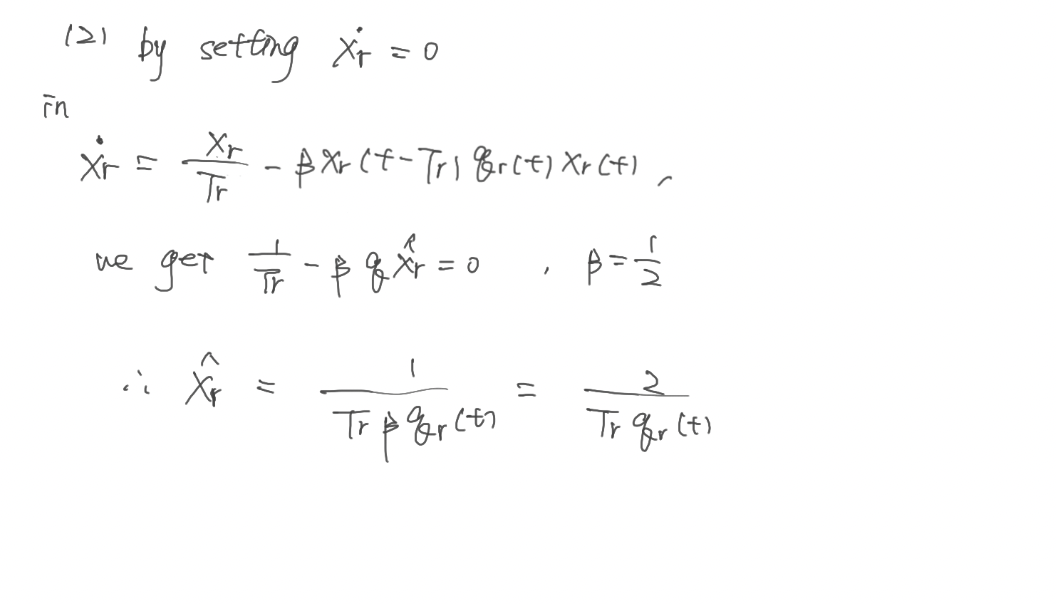 (2) by setting ẋr = 0
in
ẋr = xr/Tr - βxr(t-Tr)qr(t)xr(t),
we get 1/Tr - βqx̂r = 0, β = 1/2
∴ x̂r = 1/(Trβqr(t)) = 2/(Trqr(t))